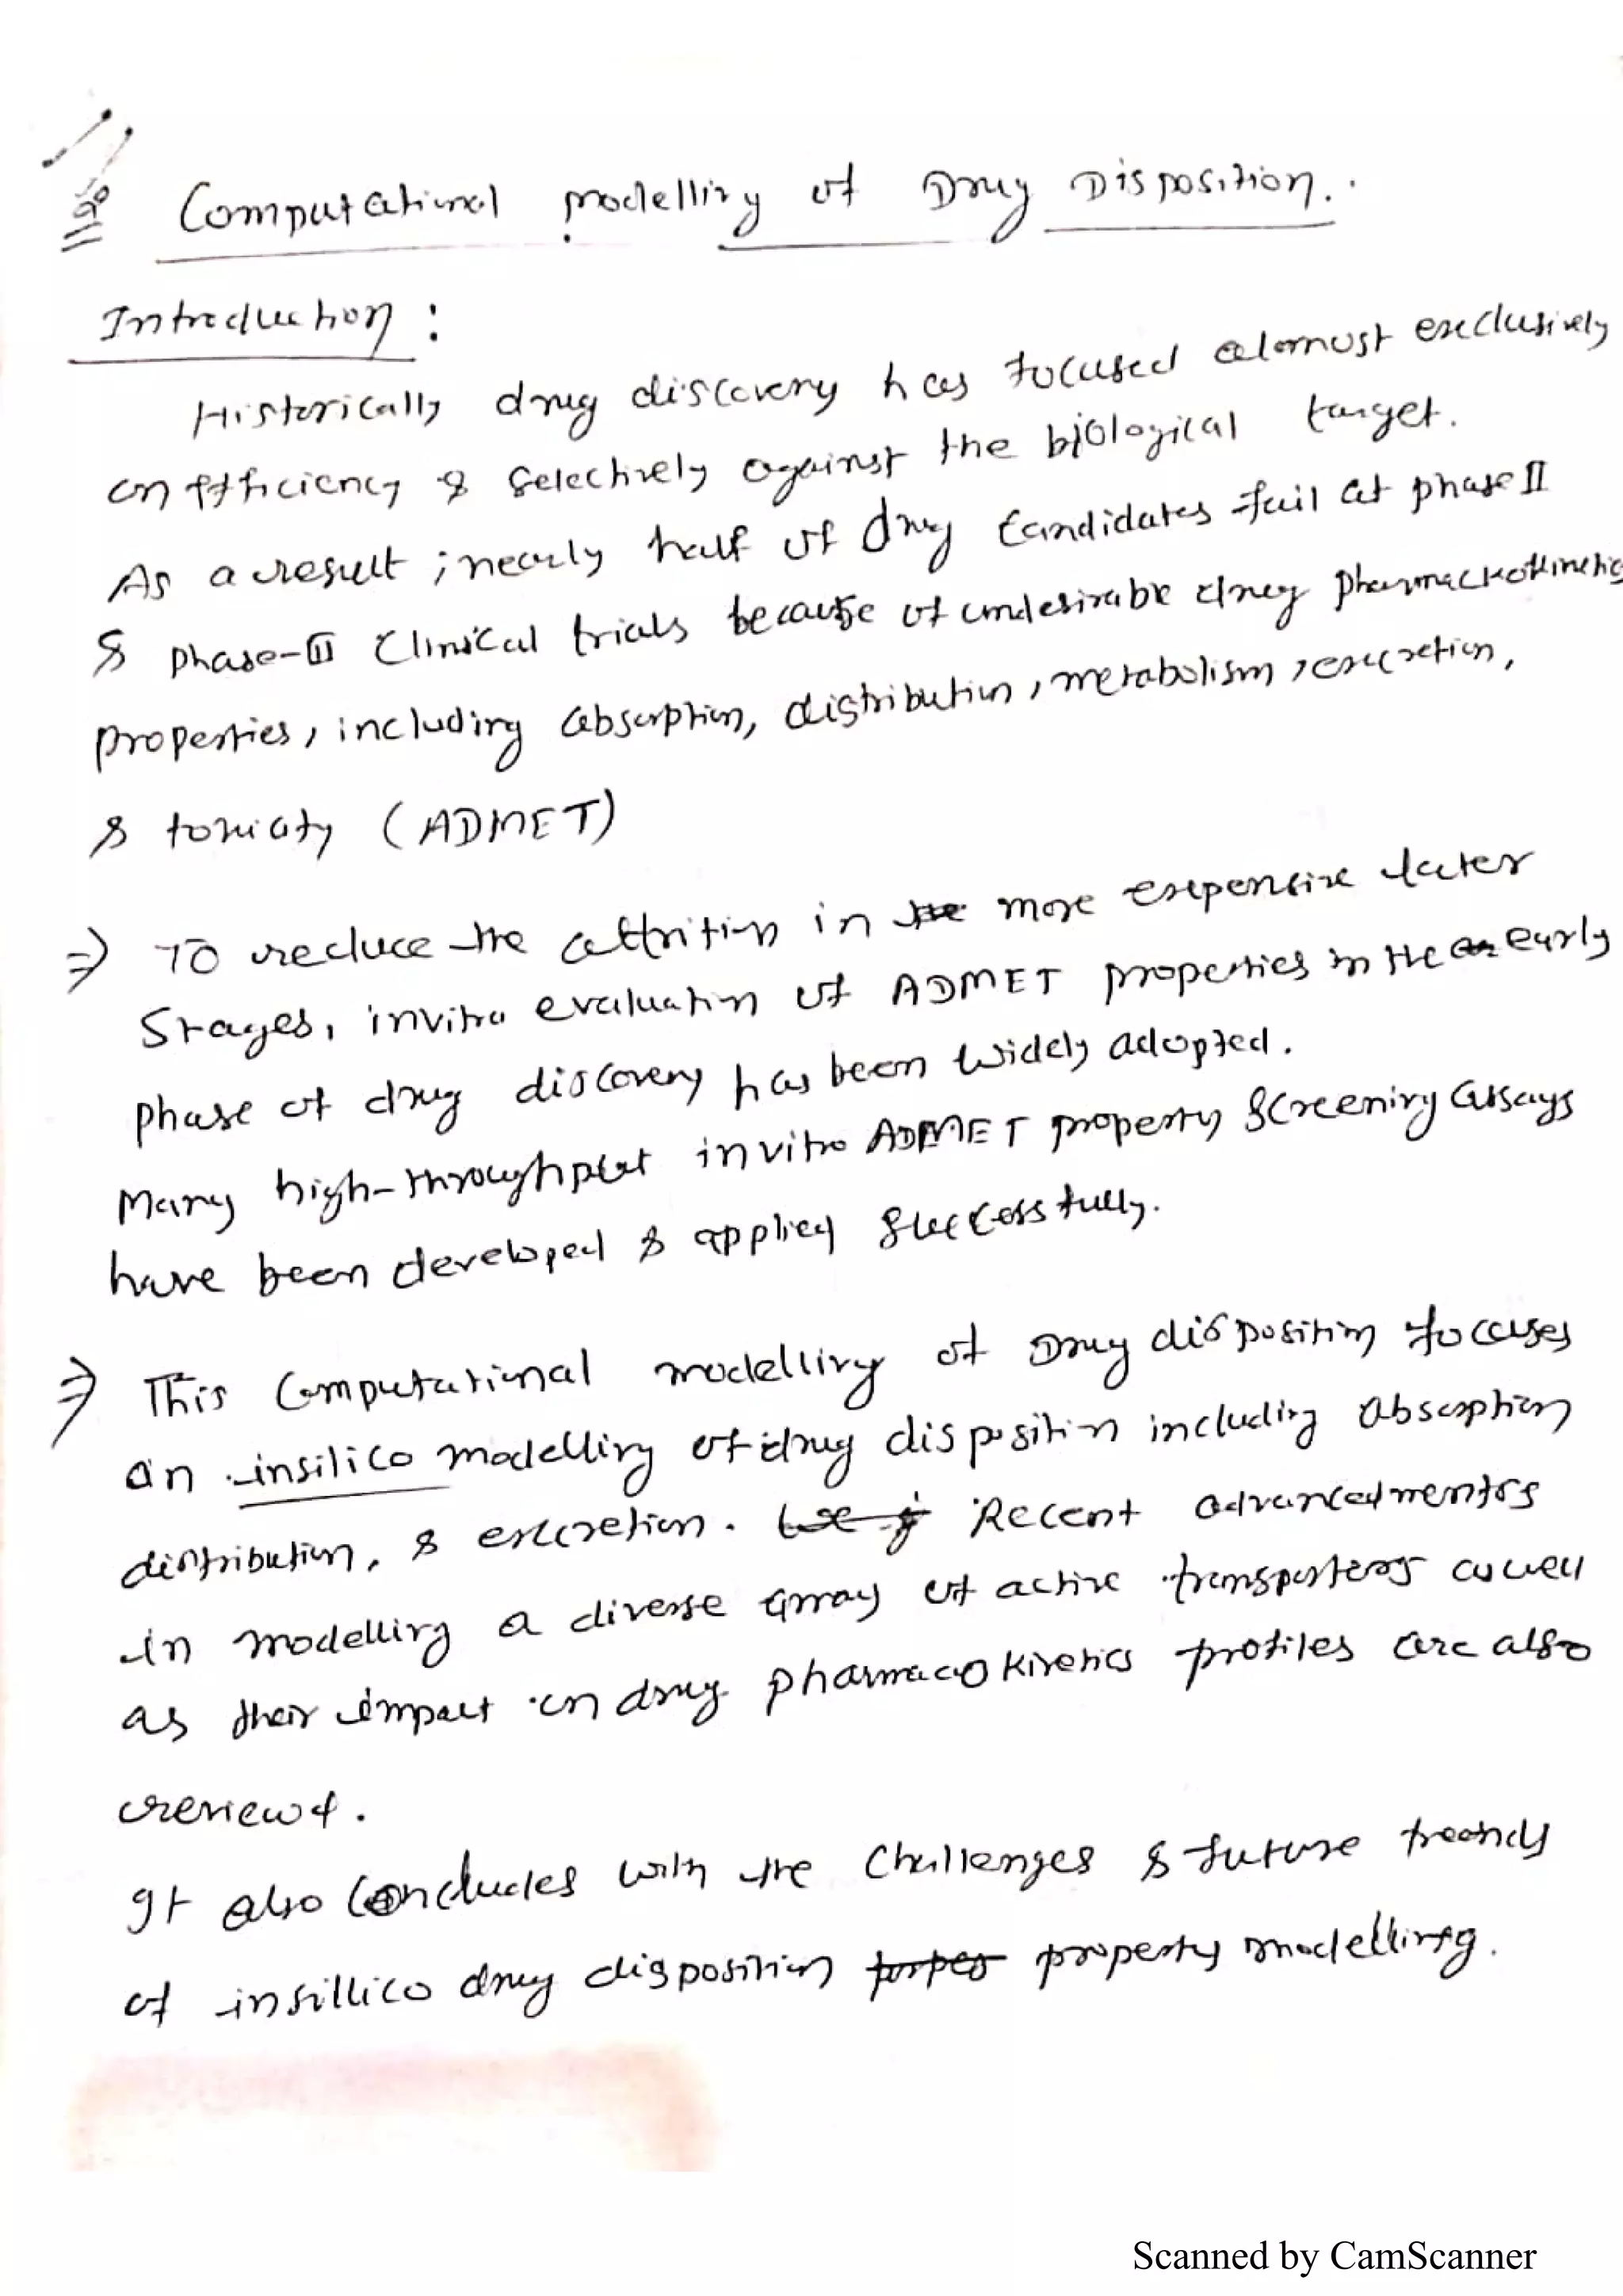 Computational modelling of Drug Disposition..
Introduction :
Historically drug discovery has focused alomost exclusively
on efficiency & selectively against the biological target.
As a result ; nearly half of drug candidates fail at phase II
& phase-III Clinical trials because of undesirable drug pharmackokinetic
properties, including absorption, distribution, metabolism, excretion,
& toxicity (ADMET)
⇒ To reduce the attrition in the more expensive later
Stages, invitro evaluation of ADMET properties in the early
phase of drug discovery has been widely adopted.
Many high-throughput invitro ADMET property screening assays
have been developed & applied successfully.
⇒ This Computational modelling of Drug disposition focuses
on insilico modelling of drug disposition including absorption
distribution, & excretion. Recent advancedments
in modelling a diverse array of active transporters as well
as their impact on drug pharmacokinetics profiles are also
review.
It also concludes with the challenges & future treands
of insillico drug disposition property modelling.
Scanned by CamScanner